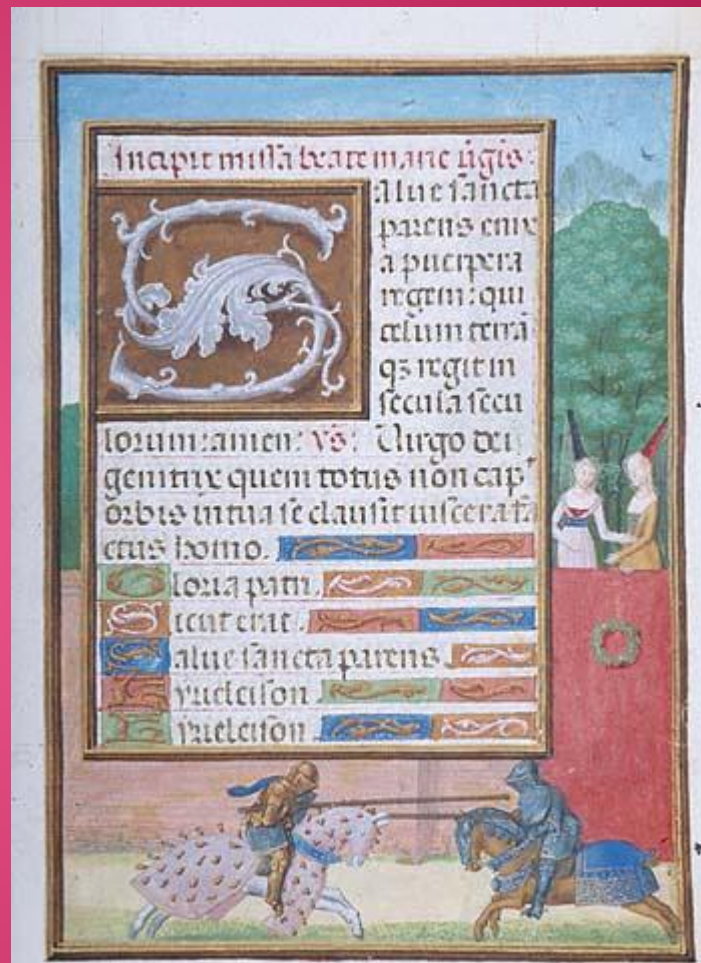 Incipit missa beate marie v̄gis:
Salue sancta
parens enix
a puerpera
regem: qui
celum terrā
qz regit in
secula secu
lorum: amen: vs: Virgo dei
genitrix quem totus non cap
orbis in tua se clausit uiscera fa
ctus homo.
Gloria patri.
Sicut erat.
Salue sancta parens
Kyrieleison
Kyrieleison